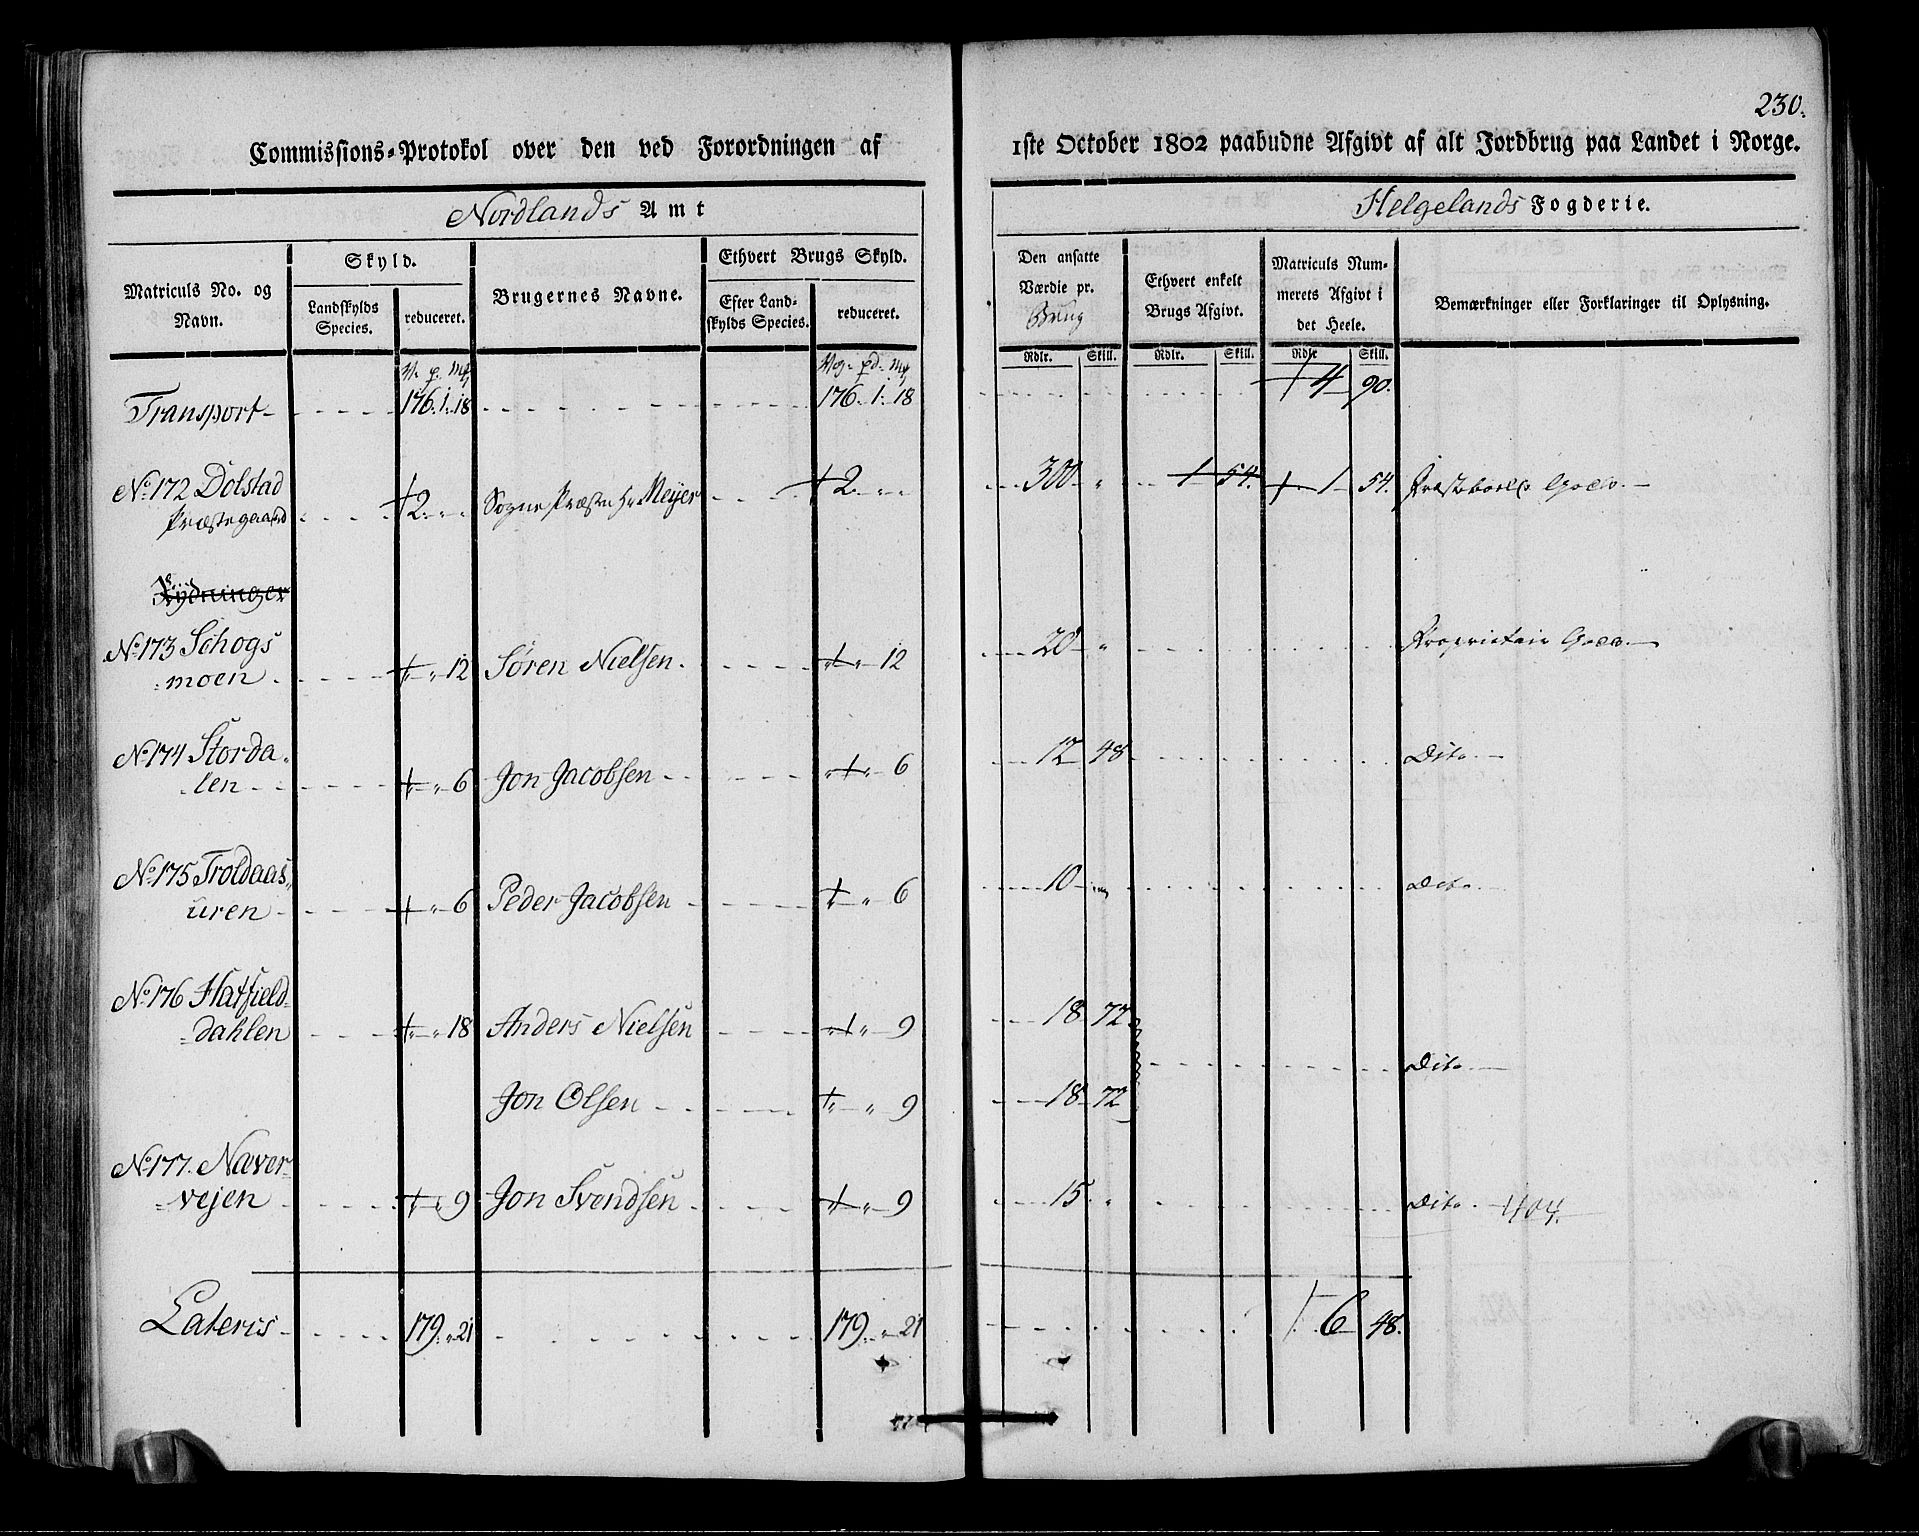 230.
Commissions=Protokol over den ved Forordningen af 1ste October 1802 paabudne Afgivt af alt Jordbrug paa Landet i Norge.
Nordlands Amt Helgelands Fogderie.
Matriculs No. og Navn.
Skyld.
Landskylds Species.
reduceret.
Brugernes Navne.
Ethvert Brugs Skyld.
Efter Land=skylds Species.
reduceret.
Den ansatte Værdie pr. Brug
Ethvert enkelt Brugs Afgivt.
Matriculs Num=merets Afgivt i det Heele.
Bemærkninger eller Forklaringer til Oplysning.
Rdlr. Skill. Rdlr. Skill. Rdlr. Skill.
V. p. mk Vog. pd. mk
Transport 176. 1. 18 176. 1. 18 4 90.
No. 172 Dolstad 2. " " Sogne Præst Hr Meyer 2. " " 300 " 1 54. 1 54. Præstebolets Gods.
Præstegaard
Rydninger
No. 173 Schogs 20 " Proprietair Gods
=moen 12 Søren Nielsen. 12
No. 174 Storda= 12 48 Dito
=len 6 Jon Jacobsen 6
No. 175 Troldaas= 10 " Dito
uren 6 Peder Jacobsen 6
No. 176 Hatfield= 18 72
=dahlen 18 Anders Nielsen 9
Dito
Jon Olsen 9 18 72
No. 177. Næver=
=vejen 9 Jon Svendsen 9 15. " Dito. 404.
Lateris 179. " 21 179. " 21 6 48.